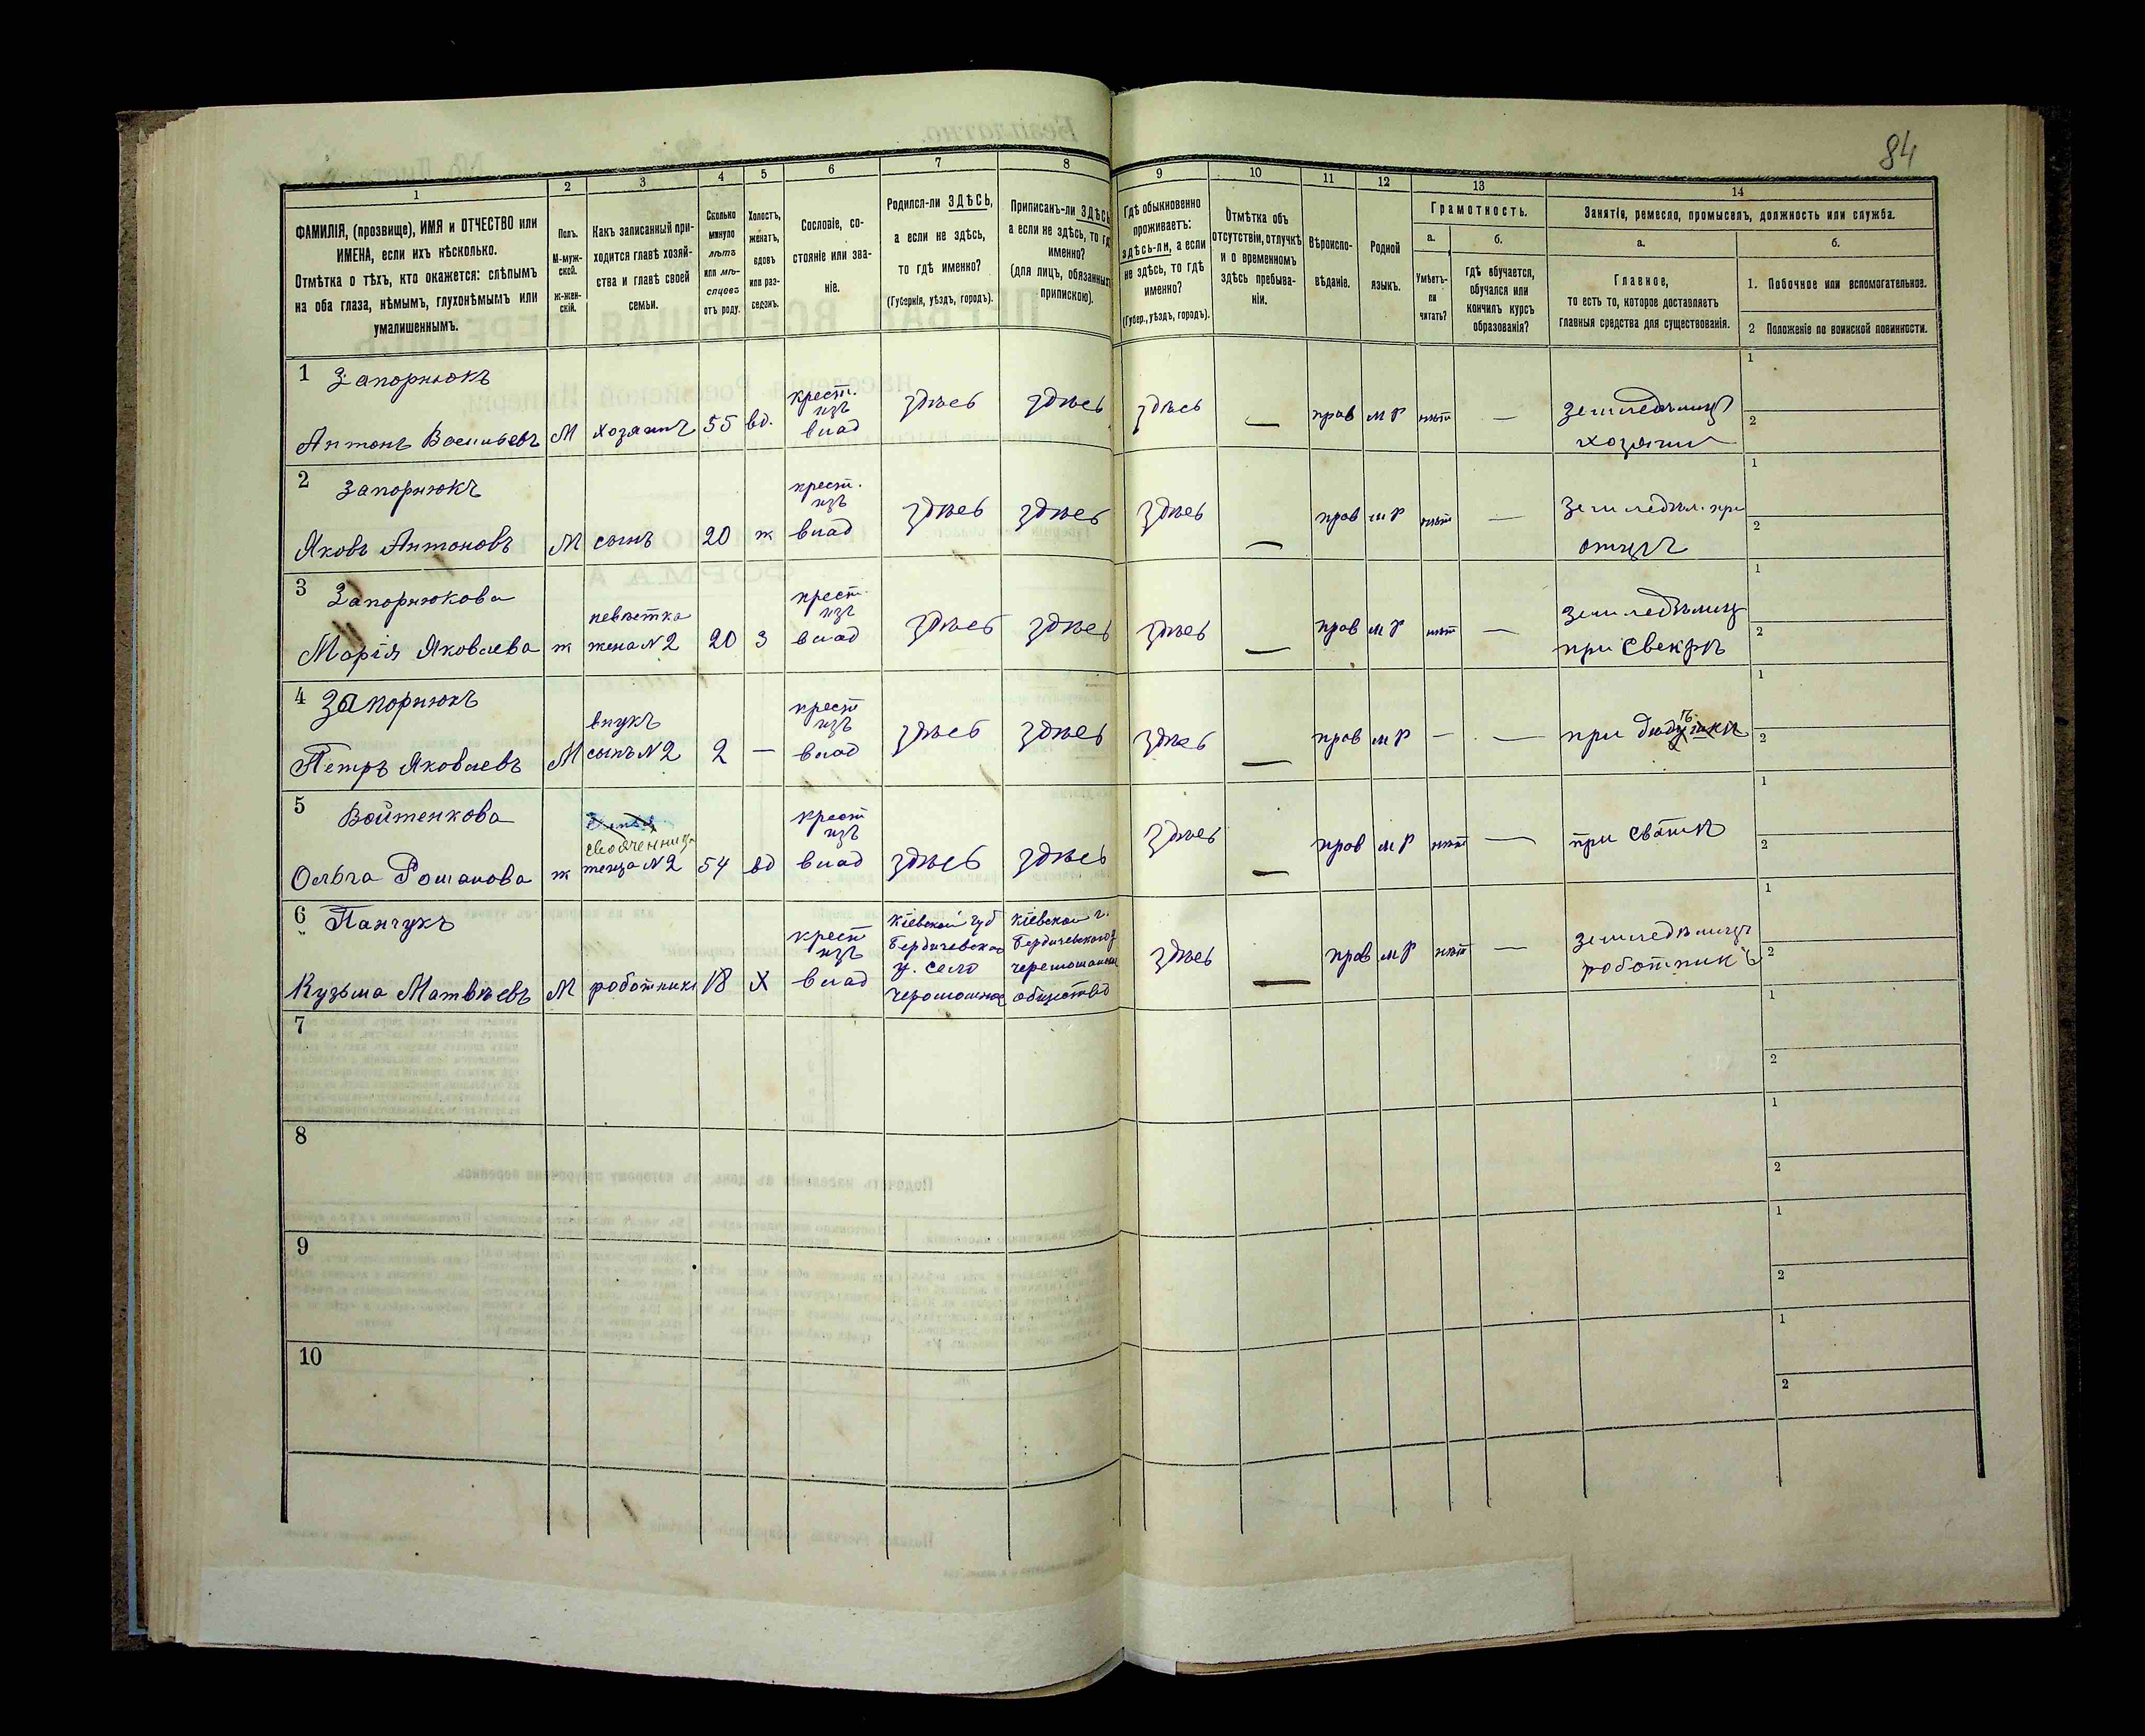 84
1
2
3
4
5
6
7
8
9
10
11
12
13
14
ФАМИЛІЯ, (прозвище), ИМЯ и ОТЧЕСТВО или
ИМЕНА, если ихъ нѣсколько.
Отмѣтка о тѣхъ, кто окажется: слѣпымъ
на оба глаза, нѣмымъ, глухонѣмымъ или
умалишеннымъ.
Полъ.
М-муж-
ской.
ж-жен-
скій.
Какъ записанный при-
ходится главѣ хозяй-
ства и главѣ своей
семьи.
Сколько
минуло
лѣтъ
или мѣ-
сяцевъ
отъ роду.
Холостъ,
женатъ,
вдовъ
или раз-
веденъ.
Сословіе, со-
стояніе или зва-
ніе.
Родился-ли ЗДѢСЬ,
а если не здѣсь,
то гдѣ именно?
(Губернія, уѣздъ, городъ).
Приписанъ-ли ЗДѢСЬ
а если не здѣсь, то гдѣ
именно?
(для лицъ, обязанныхъ
припискою).
Гдѣ обыкновенно
проживаетъ:
здѣсь-ли, а если
не здѣсь, то гдѣ
именно?
(Губер., уѣздъ, городъ).
Отмѣтка объ
отсутствіи, отлучкѣ
и о временномъ
здѣсь пребыва-
ніи.
Вѣроиспо-
вѣданіе.
Родной
языкъ.
Грамотность.
а.
б.
Умѣетъ-
ли
читать?
Гдѣ обучается,
обучался или
кончилъ курсъ
образованія?
Занятія, ремесло, промыселъ, должность или служба.
а.
б.
Главное,
то есть то, которое доставляетъ
главныя средства для существованія.
1. Побочное или вспомогательное.
2 Положеніе по воинской повинности.
1 Запорнюкъ
Антонъ Васильевъ М хозяинъ 55 вд. крест. изъ влад здѣсь здѣсь здѣсь — прав мР нѣт — земледѣлецъ
хозяин
1
2
2 Запорнюкъ
Яковъ Антоновъ М сынъ 20 ж крест. изъ влад здѣсь здѣсь здѣсь — прав мР нѣт — Земледѣл. при
отцѣ
1
2
3 Запорнюкова
Марія Яковлева ж невѣстка жена N2 20 з крест. изъ влад здѣсь здѣсь здѣсь — прав мР нѣт — земледѣлец
при свекрѣ
1
2
4 Запорнюкъ
Петръ Яковлевъ М внукъ сынъ N2 2 — крест изъ влад здѣсь здѣсь здѣсь — прав мР — — при
1
2
5 Войтенкова
Ольга Романова ж теща N2 54 вд крест изъ влад здѣсь здѣсь здѣсь — прав мР нѣт — при сватѣ
1
2
6 Панчукъ
Кузьма Матвѣевъ М роботникъ 18 Х крест изъ влад
Кіевской губ
Бердичевскаго
у. село
Кіевской г.
Бердичевского у
общество
здѣсь — прав мР нѣт — земледѣлецъ
роботникъ
1
2
7
1
2
8
1
2
9
1
2
10
1
2